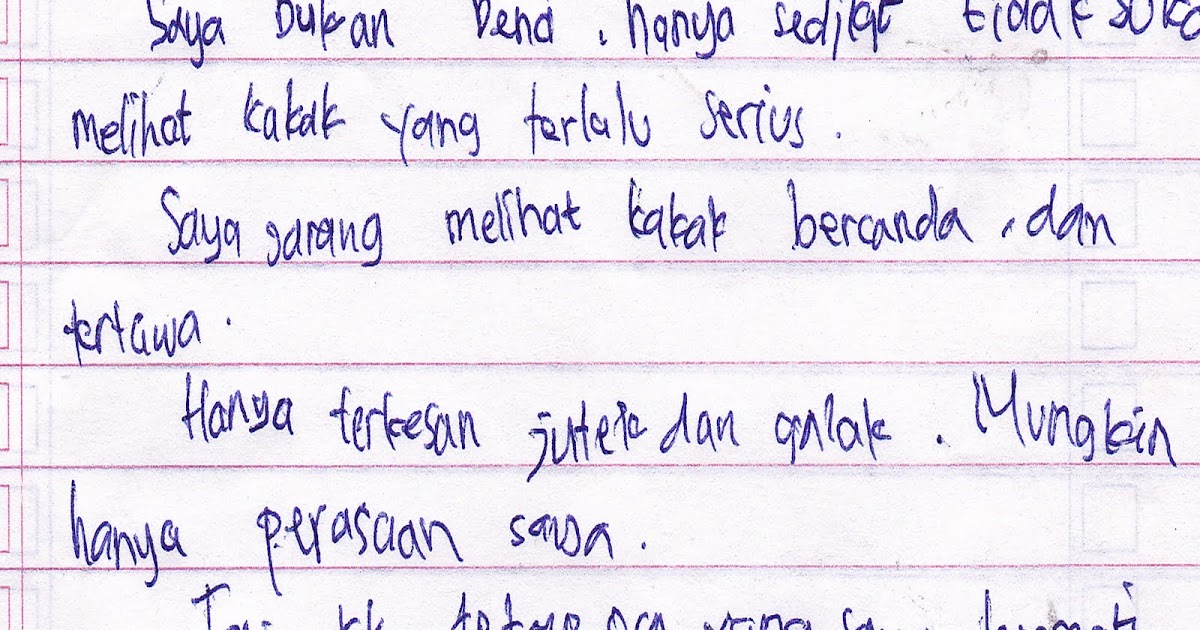 Saya bukan benci, hanya sedikit tidak suka
melihat kakak yang terlalu serius.
Saya jarang melihat kakak bercanda, dan
tertawa.
Hanya terkesan jutek dan galak. Mungkin
hanya perasaan saya.
kk tetap yang saya